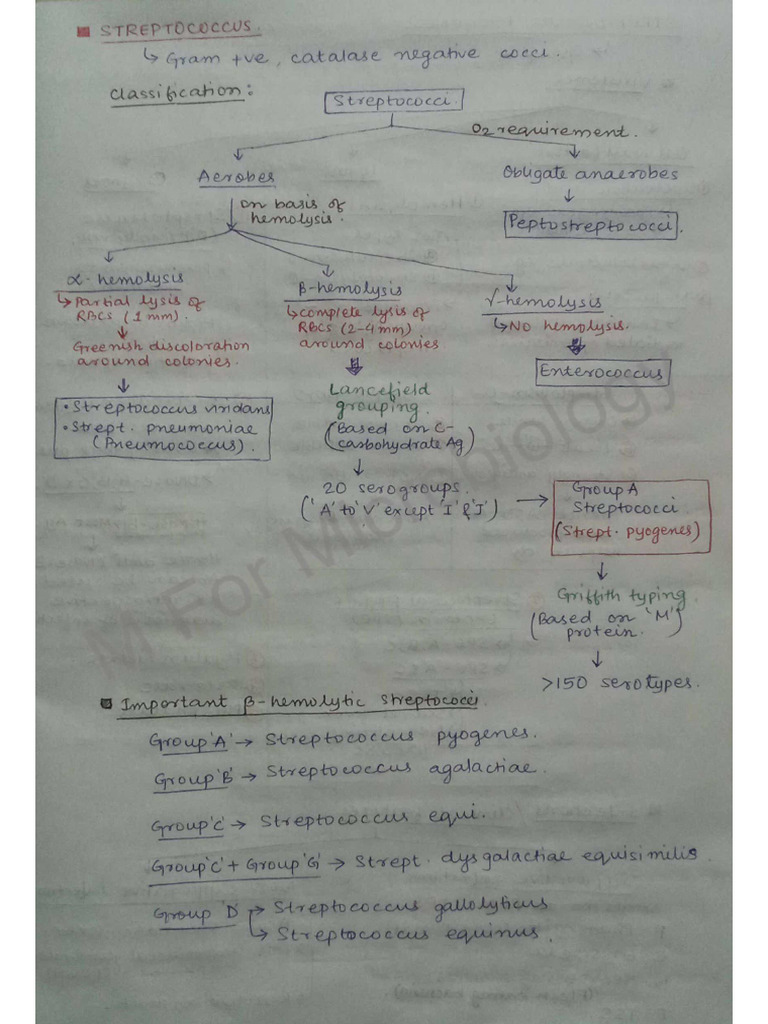 STREPTOCOCCUS.
↳ Gram +ve, catalase negative cocci.
Classification:
Streptococci.
O2 requirement.
Aerobes
Obligate anaerobes
on basis of
hemolysis.
Peptostreptococci.
α-hemolysis
↳ Partial lysis of
RBCs (1mm).
Greenish discoloration
around colonies.
• Streptococcus viridans
• Strept. pneumoniae
(Pneumococcus).
β-hemolysis
↳ complete lysis of
RBCs (2-4mm)
around colonies
Lancefield
grouping.
(Based on C-
carbohydrate Ag)
20 serogroups.
('A' to 'V' except 'I' & 'J')
γ-hemolysis
↳ No hemolysis.
Enterococcus
Group A
Streptococci
(Strept. pyogenes)
Griffith typing
(Based on 'M'
protein.)
>150 serotypes.
M For Microbiology
Important β-hemolytic streptococci
Group 'A' → Streptococcus pyogenes.
Group 'B' → Streptococcus agalactiae.
Group 'C' → Streptococcus equi.
Group 'C' + Group 'G' → Strept. dysgalactiae equisimilis.
Group 'D' → Streptococcus gallolyticus
↳ Streptococcus equinus.